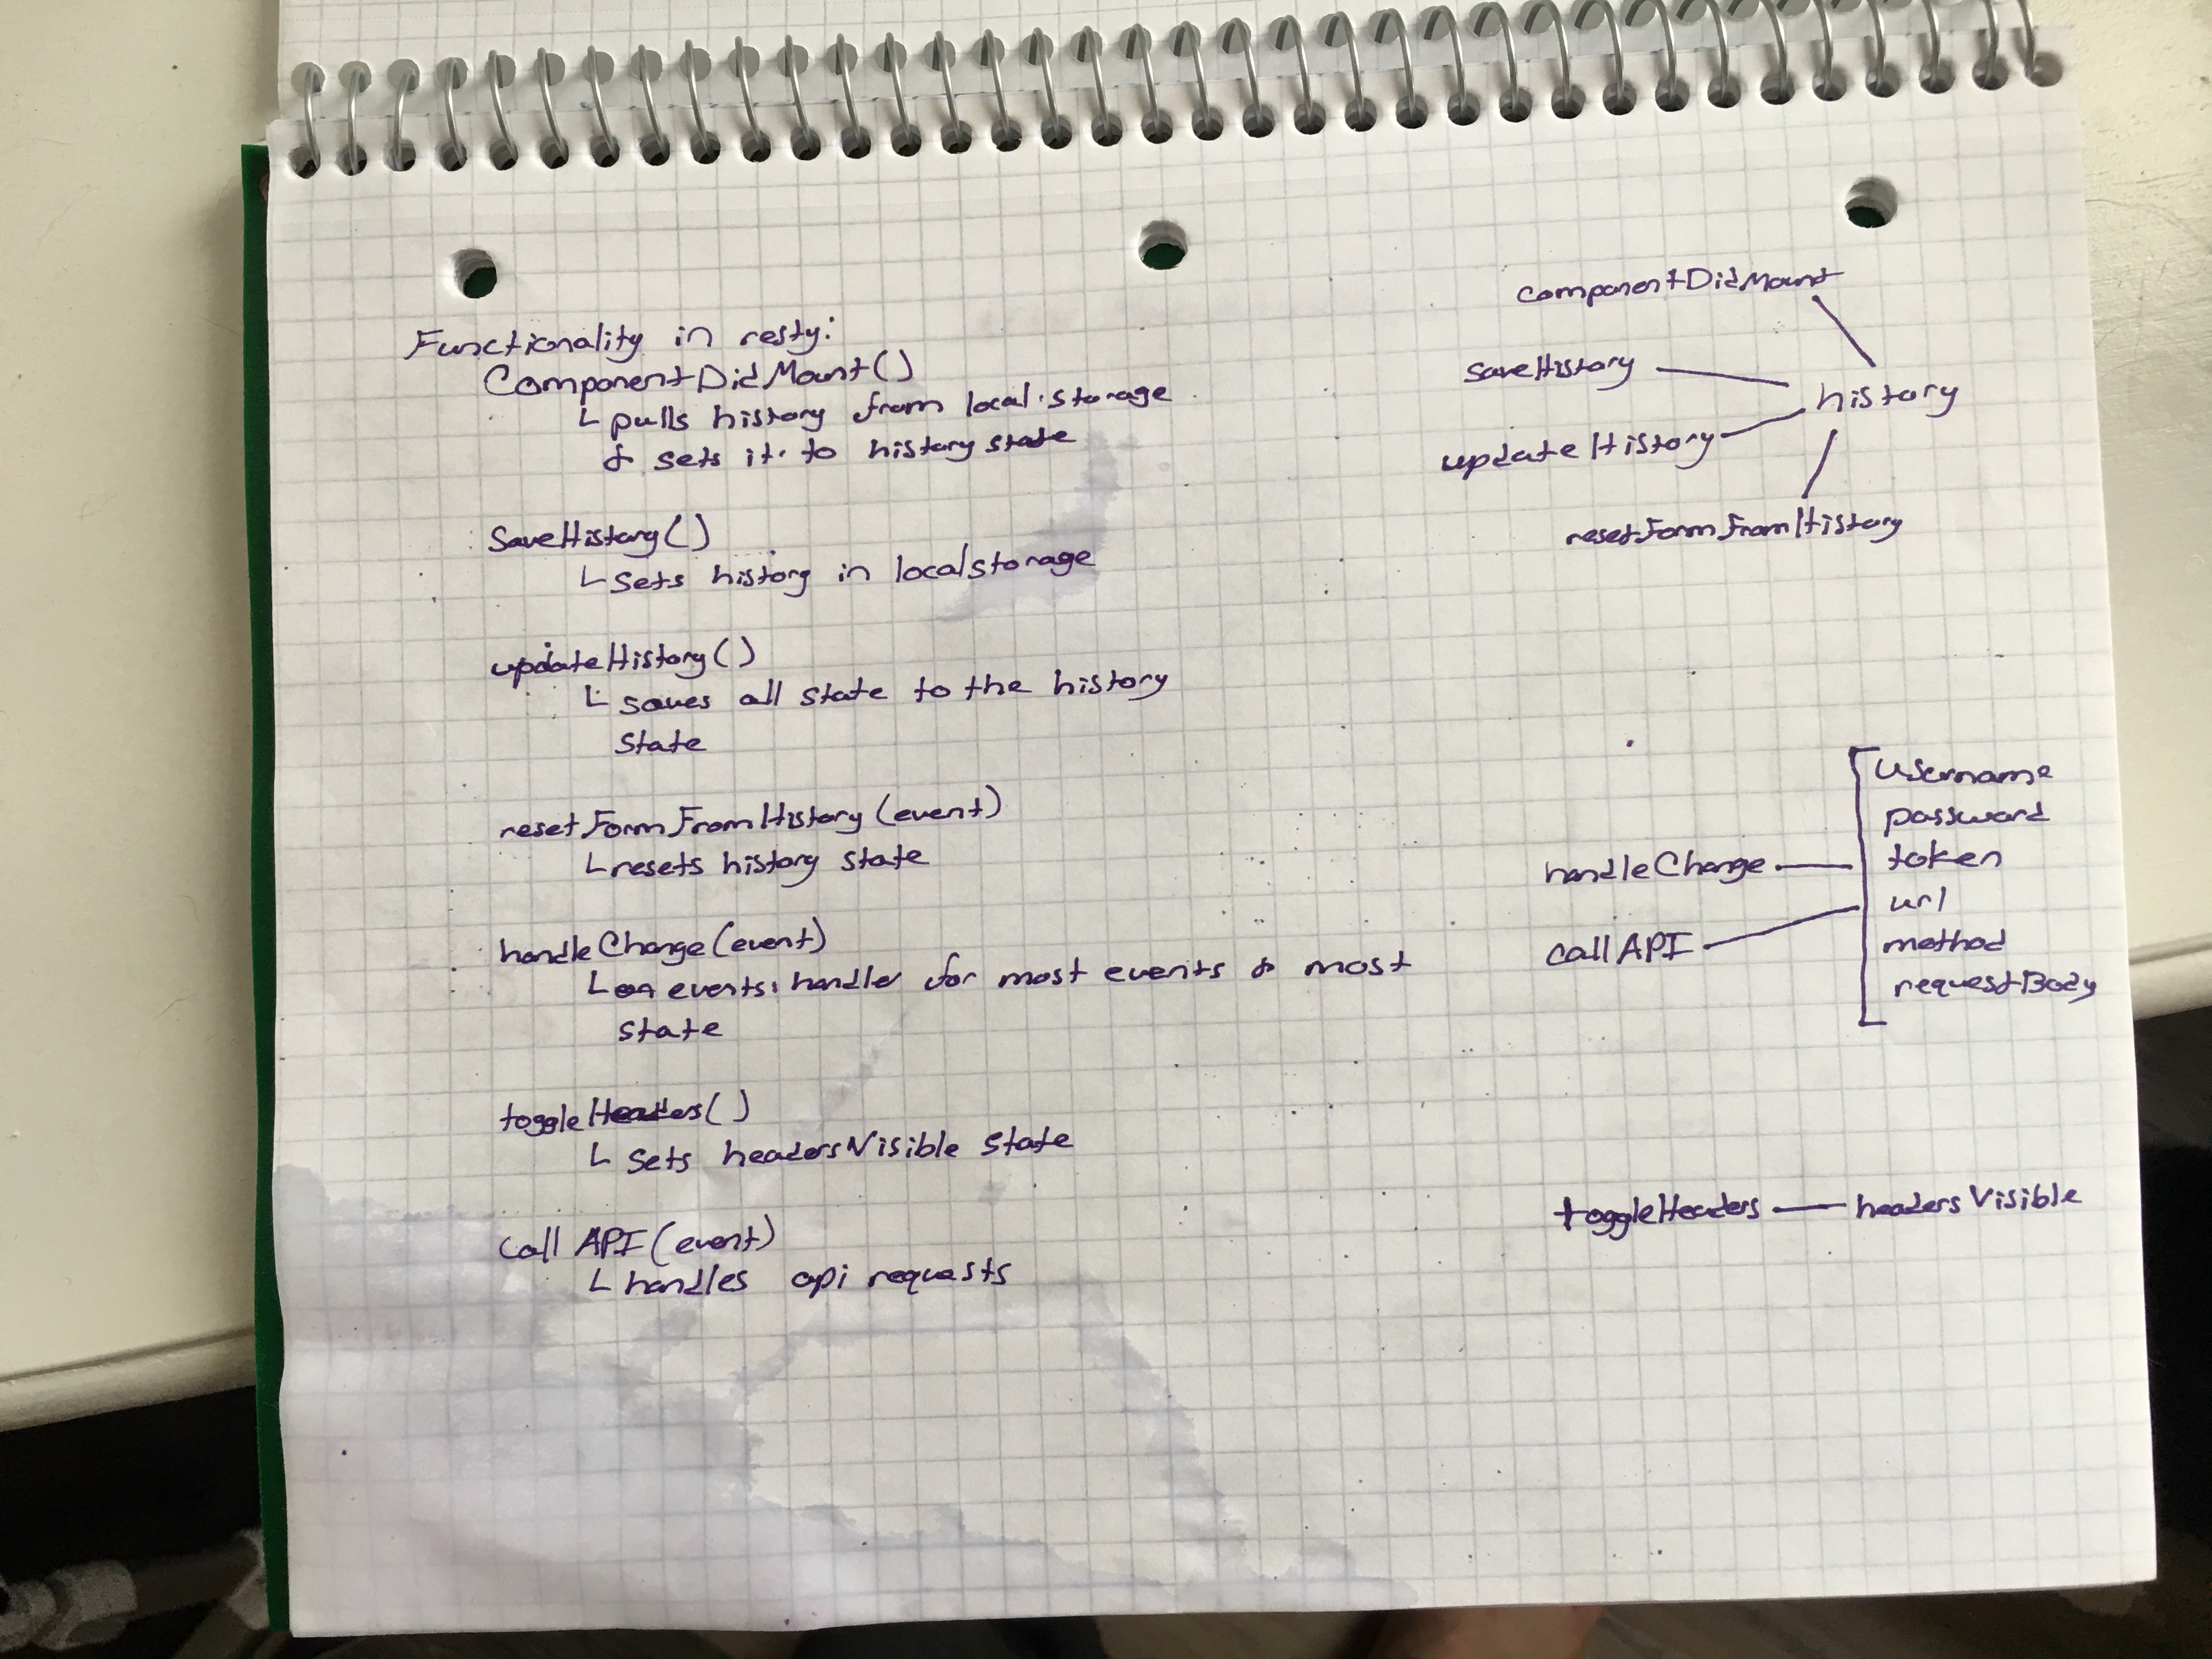 Functionality in resty:
ComponentDidMount()
L pulls history from local storage
& sets it to history state
SaveHistory()
L sets history in local storage
updateHistory()
L saves all state to the history
state
resetFormFromHistory(event)
L resets history state
handleChange(event)
L on events, handler for most events & most
state
toggleHeaders()
L sets headersVisible state
callAPI(event)
L handles api requests
componentDidMount
saveHistory
history
updateHistory
resetFormFromHistory
username
password
handleChange
token
url
callAPI
method
requestBody
toggleHeaders
headersVisible